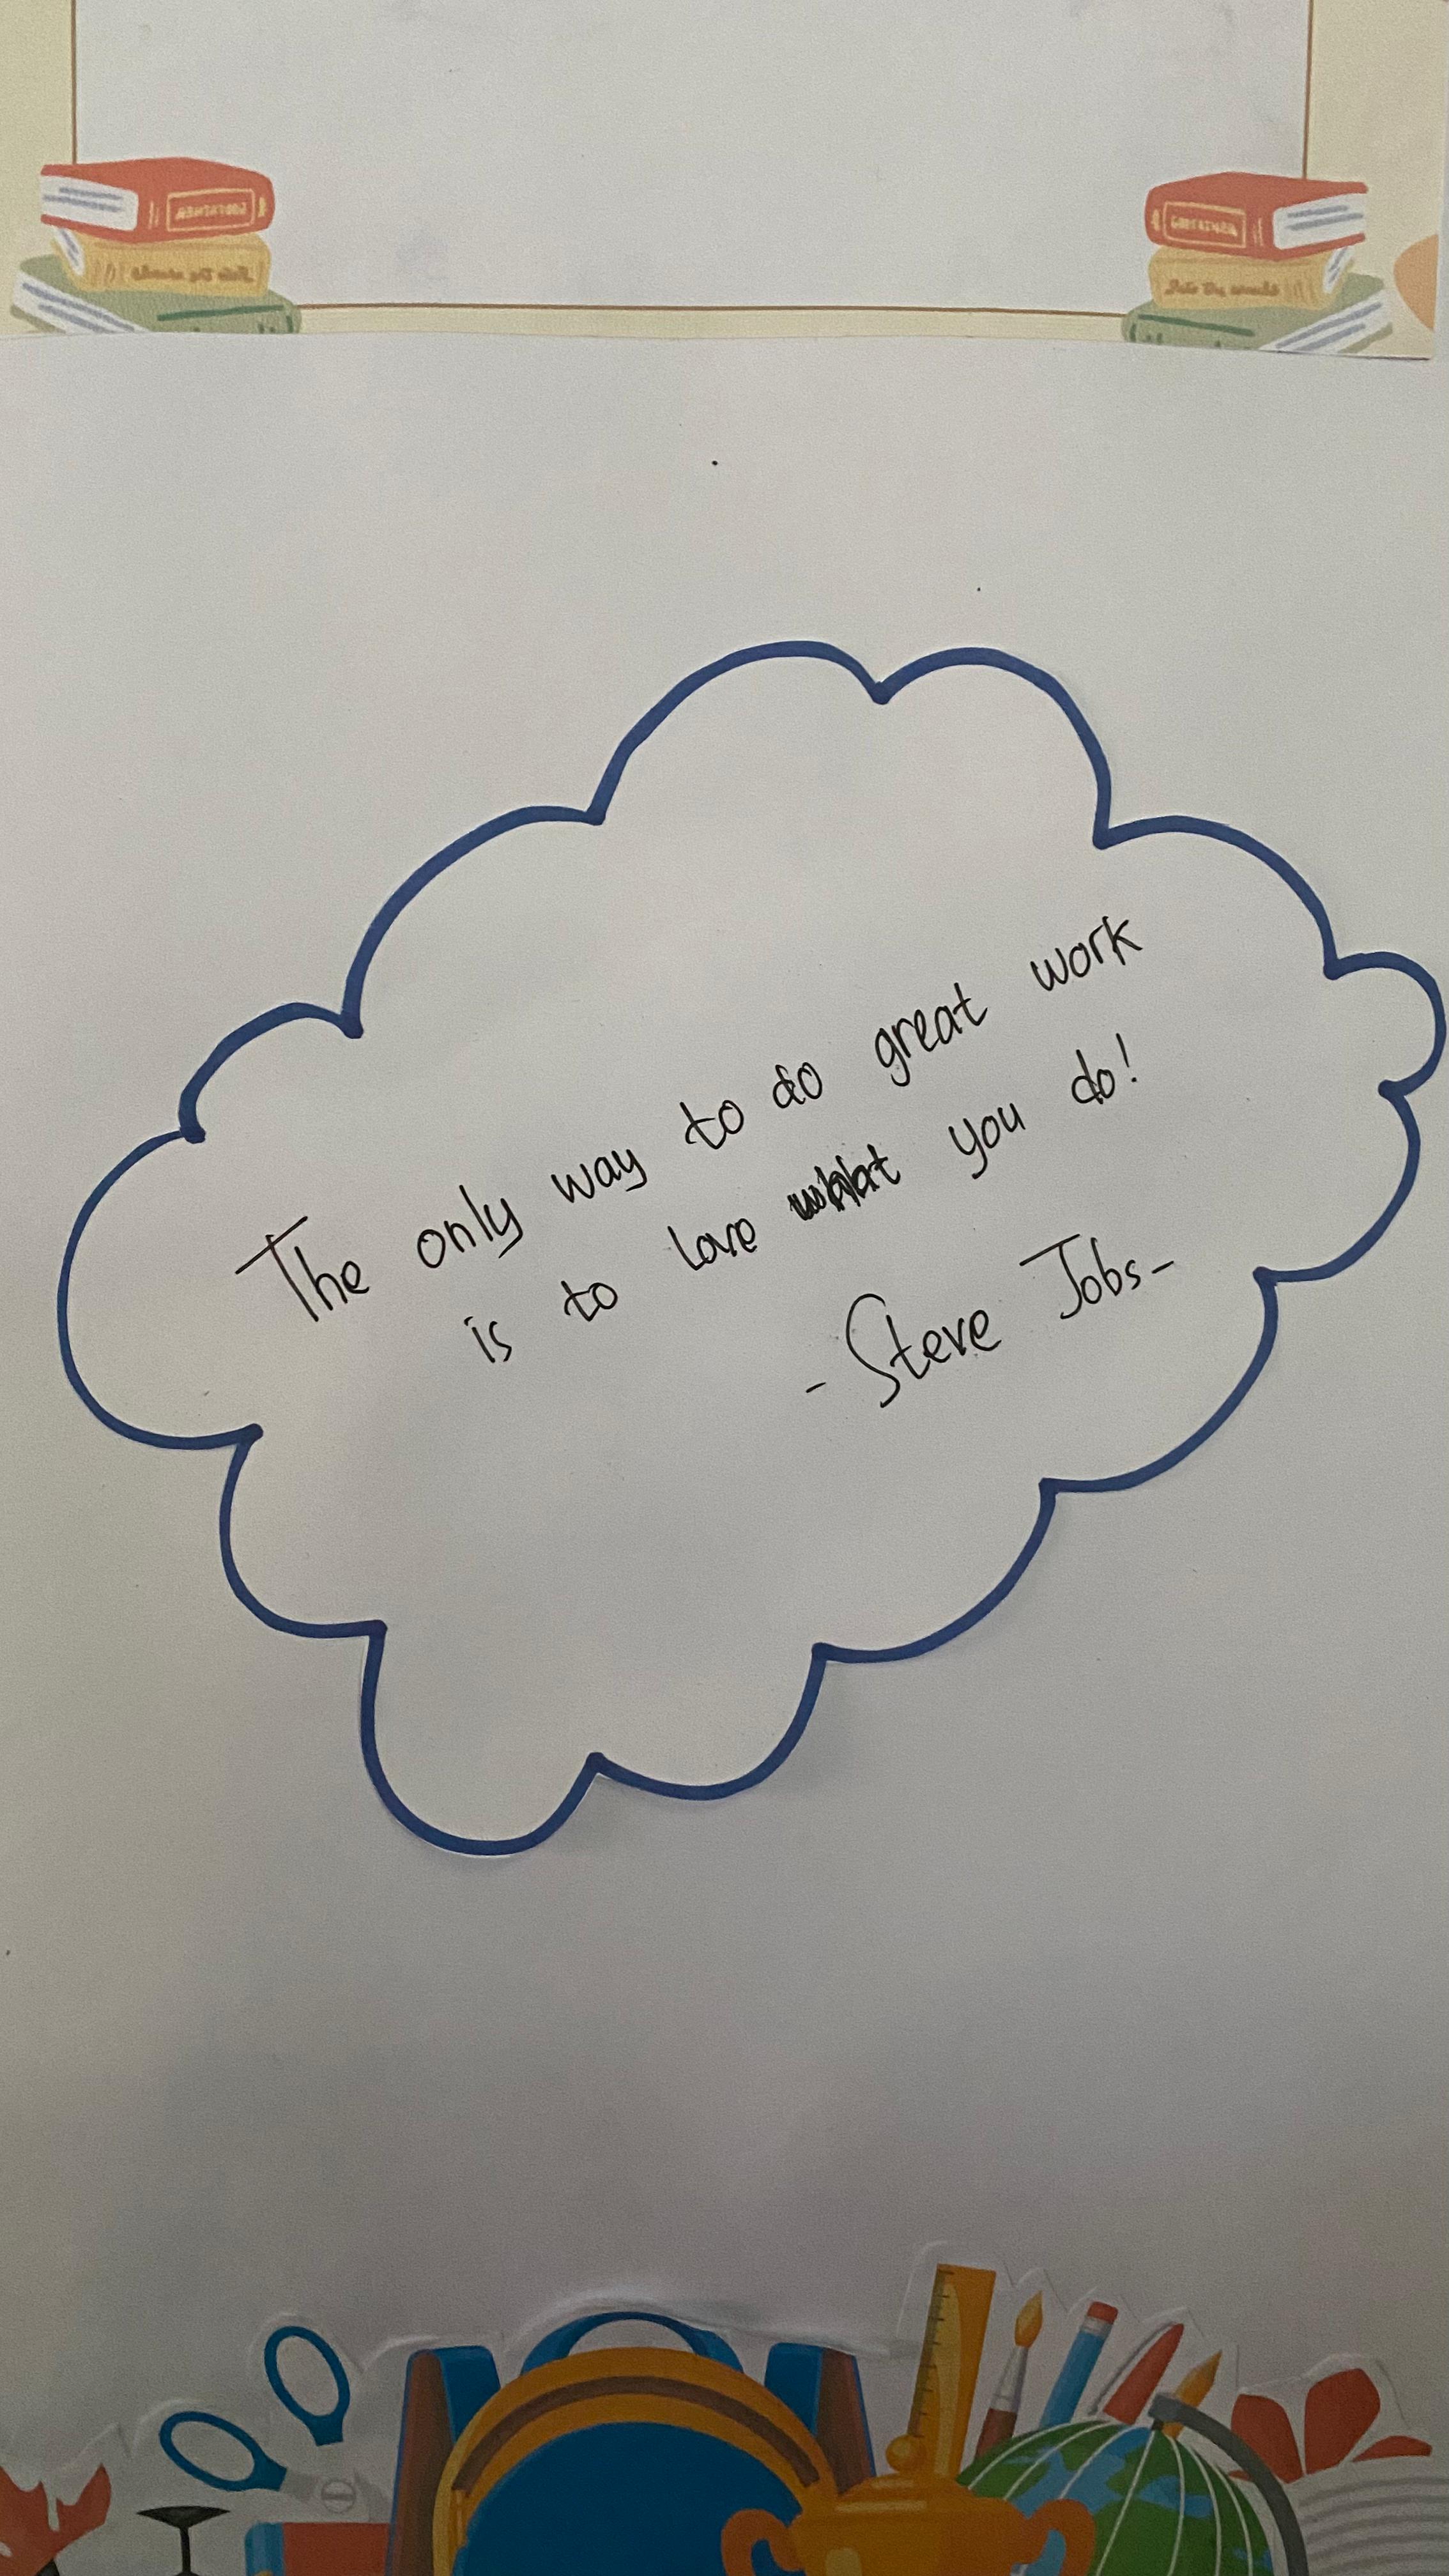 The only way to do great work
is to love what you do!
- Steve Jobs -